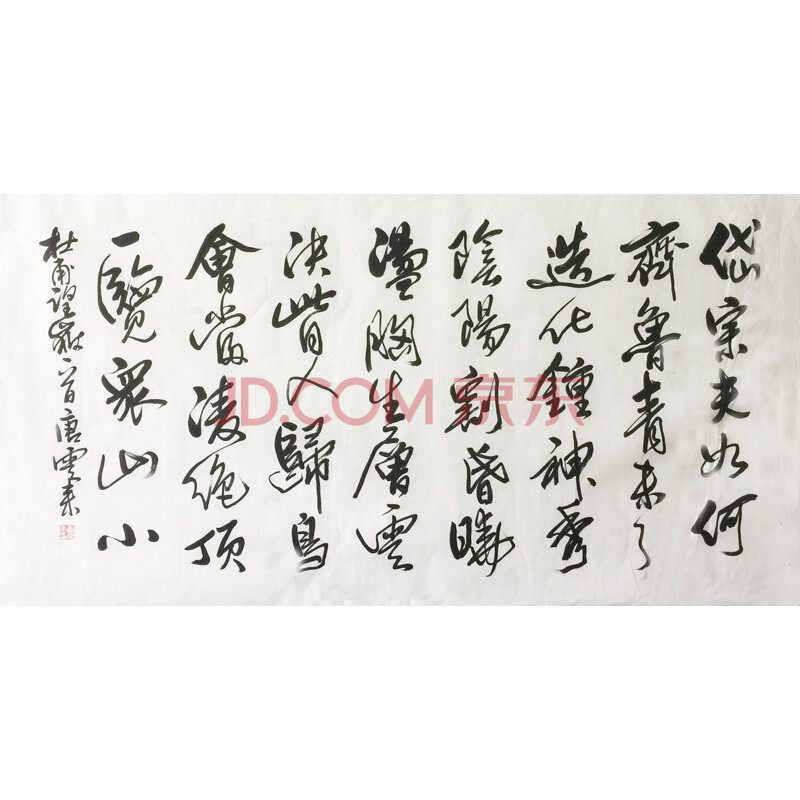 岱宗夫如何
齊魯青未了
造化鍾神秀
陰陽割昏曉
盪胸生層雲
決眥入歸鳥
會當凌絕頂
一覽眾山小
杜甫望嶽一首唐雲来
JD.COM 京东